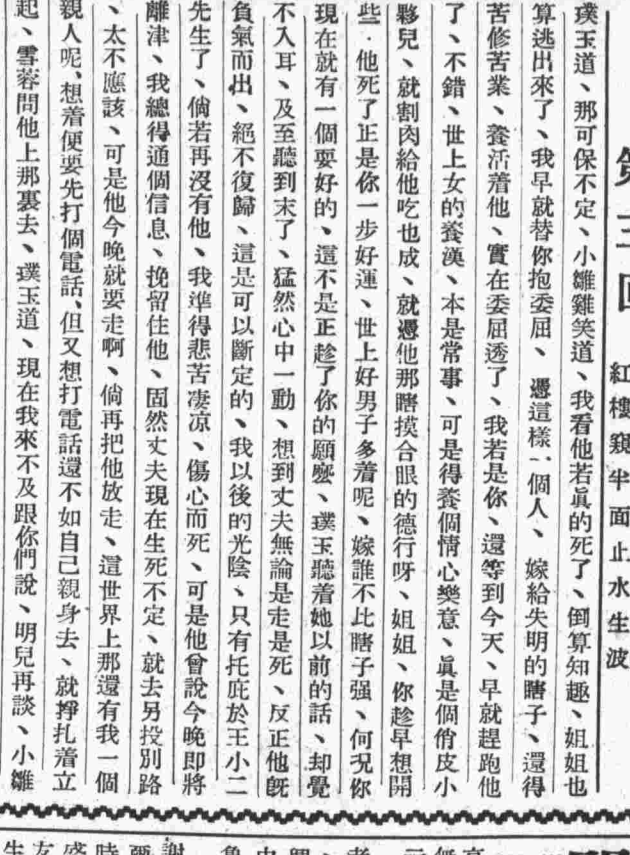 第三回 紅樓窺半面止水生波
璞玉道、那可保不定、小雛雞笑道、我看他若眞的死了、倒算知趣、姐姐也
算逃出來了、我早就替你抱委屈、憑這樣一個人、嫁給失明的瞎子、還得
苦修苦業、養活着他、實在委屈透了、我若是你、還等到今天、早就趕跑他
了、不錯、世上女的養漢、本是常事、可是得養個情心樂意、眞是個俏皮小
夥兒、就割肉給他吃也成、就憑他那瞎摸合眼的德行呀、姐姐、你趁早想開
些．他死了正是你一步好運、世上好男子多着呢、嫁誰不比瞎子强、何況你
現在就有一個要好的、這不是正趁了你的願麼、璞玉聽着她以前的話、却覺
不入耳、及至聽到末了、猛然心中一動、想到丈夫無論是走是死、反正他旣
負氣而出、絕不復歸、這是可以斷定的、我以後的光陰、只有托庇於王小二
先生了、倘若再沒有他、我準得悲苦凄凉、傷心而死、可是他曾說今晚即將
離津、我總得通個信息、挽留住他、固然丈夫現在生死不定、就去另投別路
、太不應該、可是他今晚就要走啊、倘再把他放走、這世界上那還有我一個
親人呢、想着便要先打個電話、但又想打電話還不如自己親身去、就掙扎着立
起、雪蓉問他上那裏去、璞玉道、現在我來不及跟你們說、明兒再談、小雛